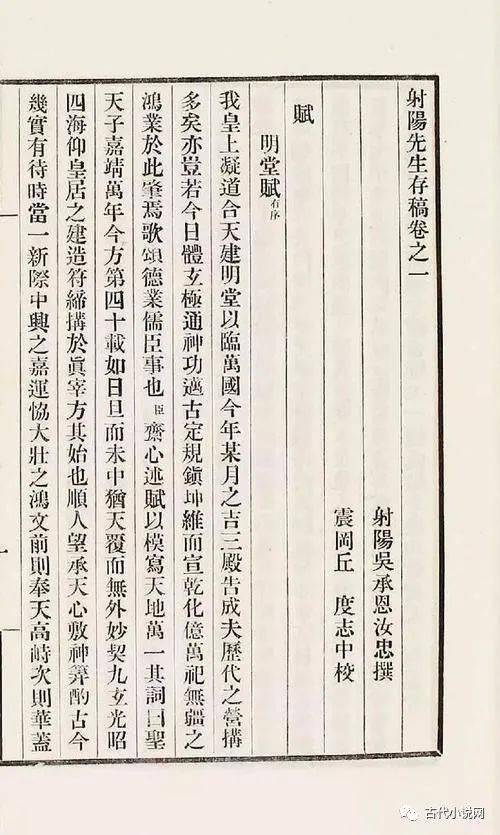 射陽先生存稿卷之一
射陽吳承恩汝忠撰
震岡丘 度志中校
賦
明堂賦有序
我皇上凝道合天建明堂以臨萬國今年某月之吉三殿告成夫歷代之營搆
多矣亦豈若今日體玄極通神功邁古定規鎭坤維而宣乾化億萬祀無疆之
鴻業於此肇焉歌頌德業儒臣事也臣齋心述賦以模寫天地萬一其詞曰聖
天子嘉靖萬年今方第四十載如日旦而未中猶天覆而無外妙契九玄光昭
四海仰皇居之建造符締搆於眞宰方其始也順人望承天心敷神筭酌古今
幾實有待時當一新際中興之嘉運協大壯之鴻文前則奉天高峙次則華蓋
古代小说网